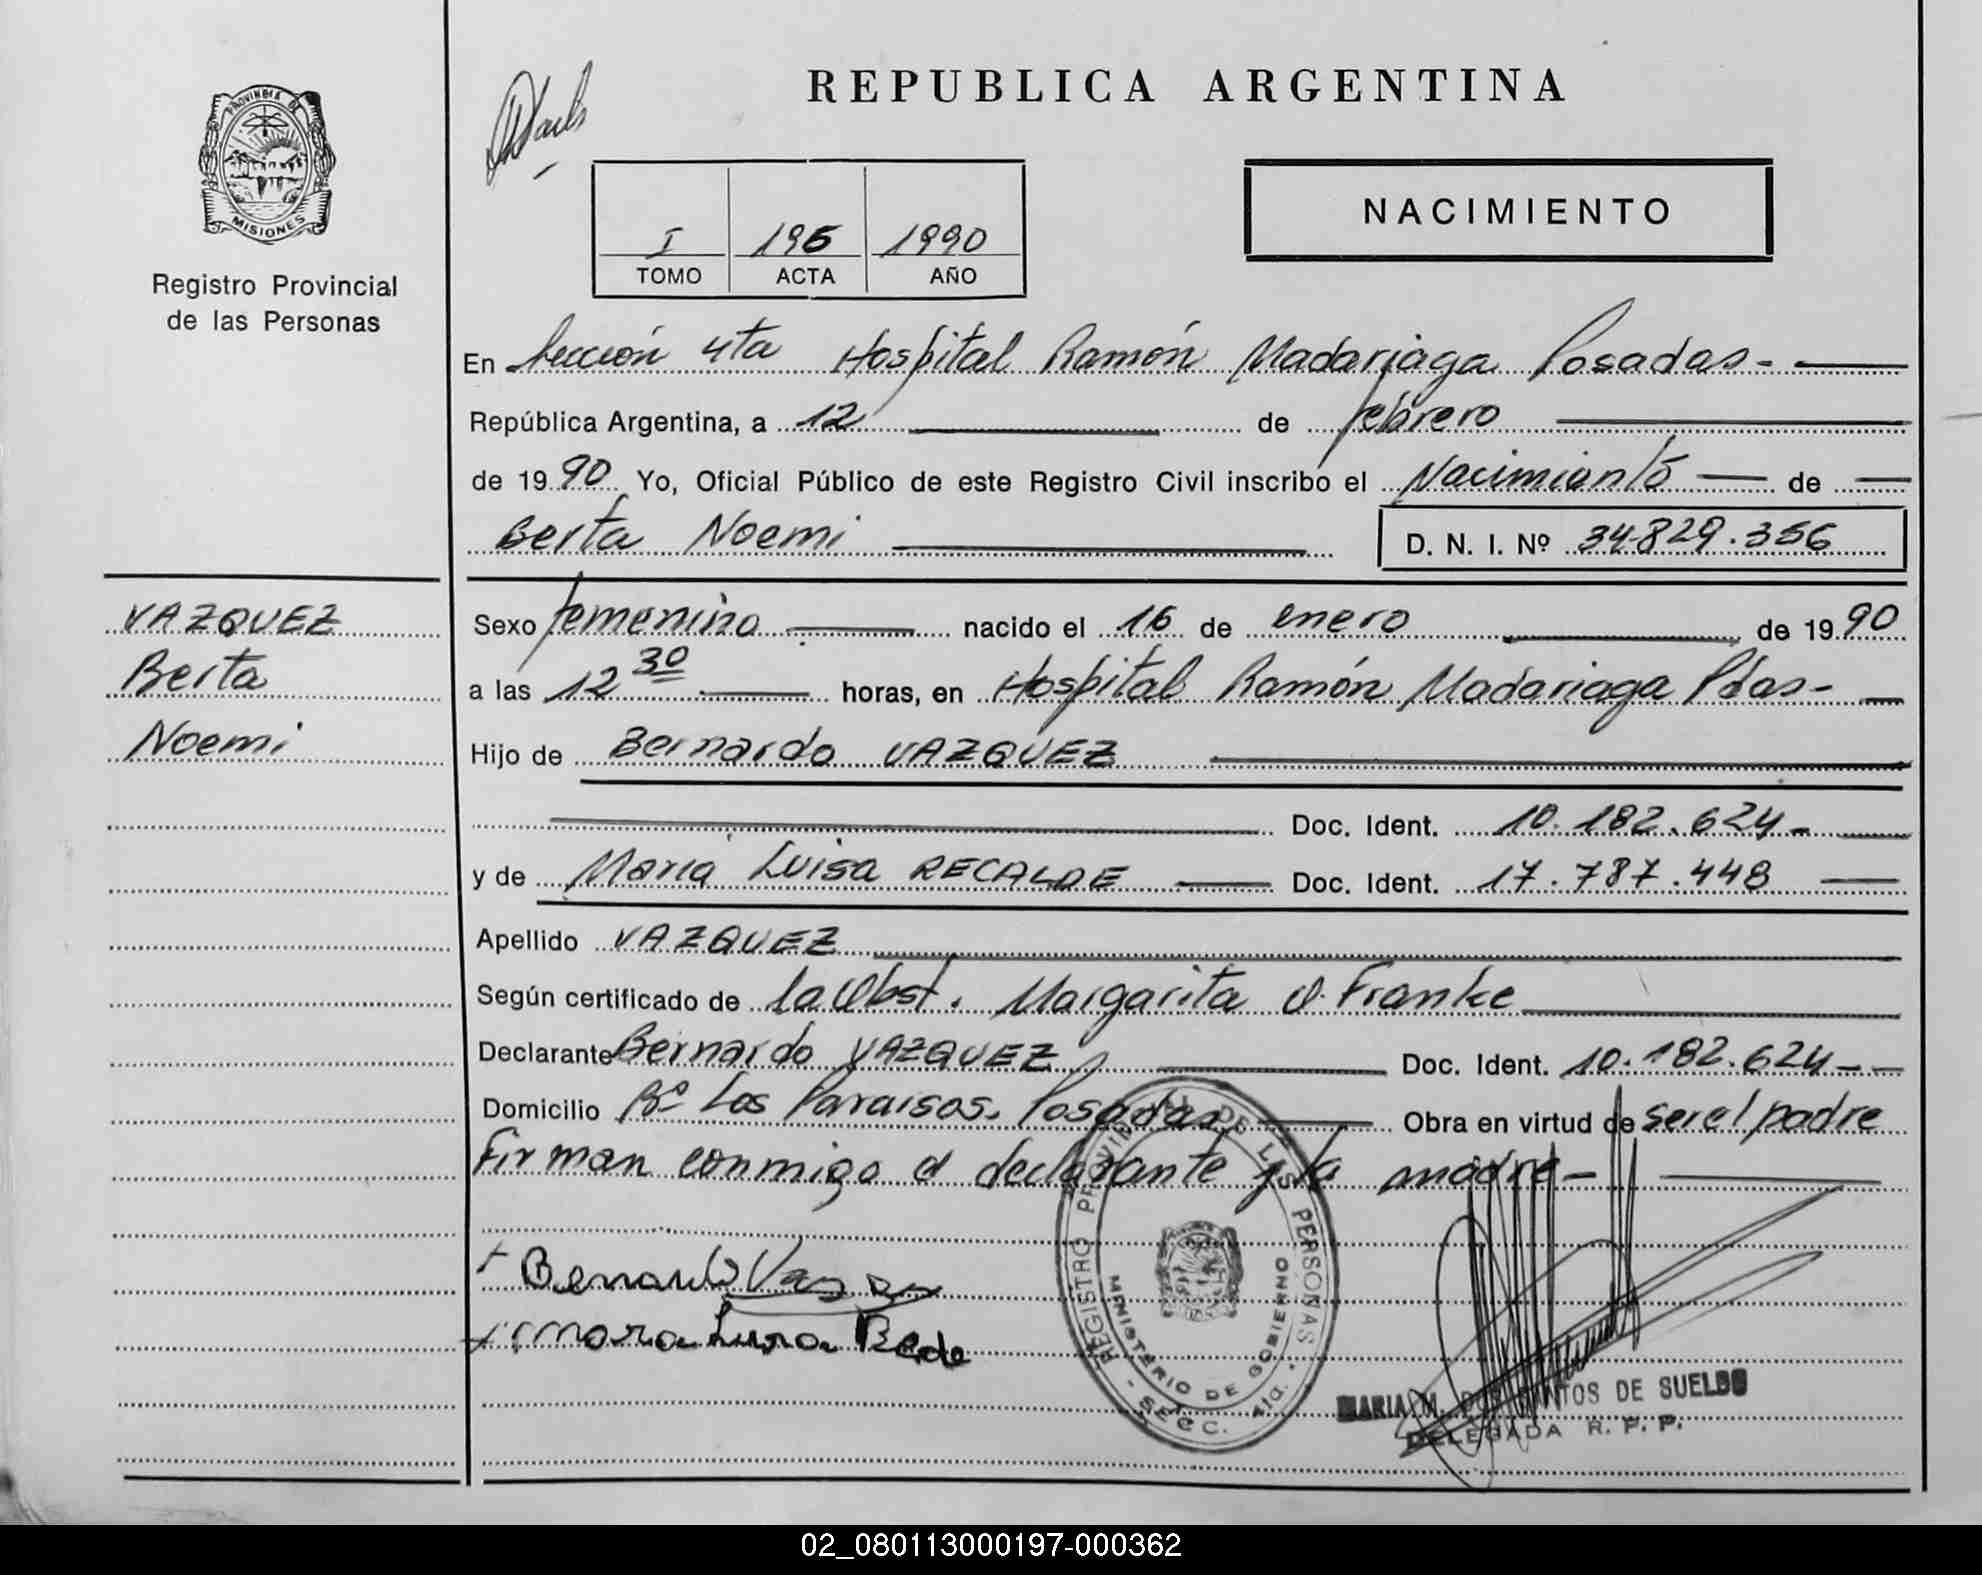 REPUBLICA ARGENTINA
PROVINCIA DE
MISIONES
Registro Provincial
de las Personas
NACIMIENTO
I 196 1990
TOMO ACTA AÑO
En Sección 4ta Hospital Ramón Madariaga Posadas-
República Argentina, a 12 de febrero
de 1990 Yo, Oficial Público de este Registro Civil inscribo el Nacimiento de
Berta Noemi D. N. I. Nº 34.829.356
VAZQUEZ
Berta
Noemi
Sexo femenino nacido el 16 de enero de 1990
a las 12 30 horas, en Hospital Ramón Madariaga Pdas-
Hijo de Bernardo VAZQUEZ
Doc. Ident. 10.182.624-
y de Maria Luisa RECALDE Doc. Ident. 17.787.448
Apellido VAZQUEZ
Según certificado de la Obst. Margarita O. Franke
Declarante Bernardo VAZQUEZ Doc. Ident. 10.182.624-
Domicilio Bº Los Paraisos. Posadas Obra en virtud de ser el padre
Firman conmigo el declarante y la madre-
Bernardo Vazquez
Maria Luisa
REGISTRO PROVINCIAL DE LAS PERSONAS
MINISTERIO DE GOBIERNO
- SECC. 4ta. -
MARIA M. DOS SANTOS DE SUELDO
DELEGADA R. P. P.
02_080113000197-000362